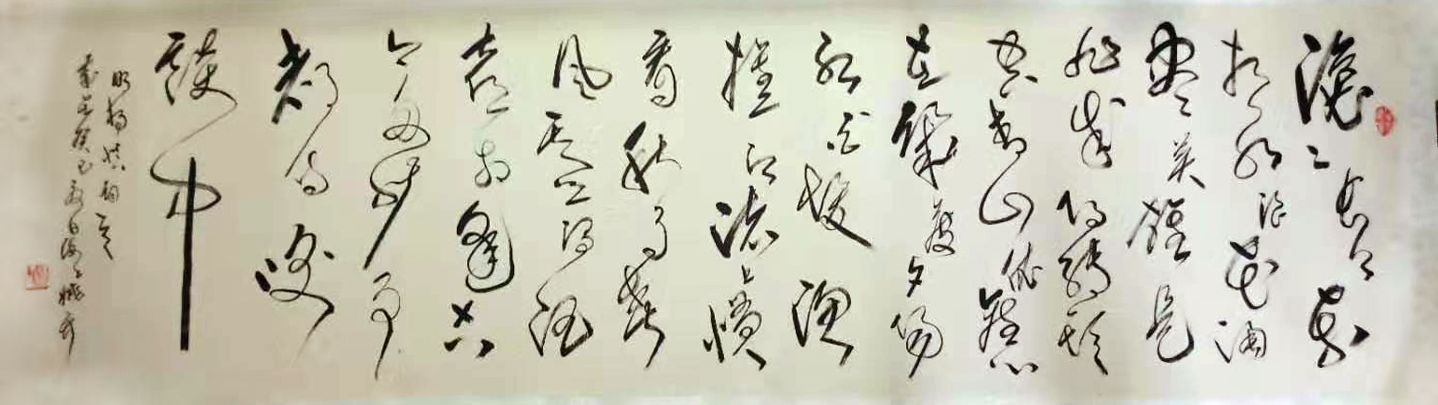 滚々长江东
逝水浪花淘
尽英雄是
非成败转头
空青山依旧
在幾度夕阳
红白发渔
樵江渚上惯
看秋月春
风一壶浊酒
喜相逢古
今多少事
都付笑
谈中
明杨慎词